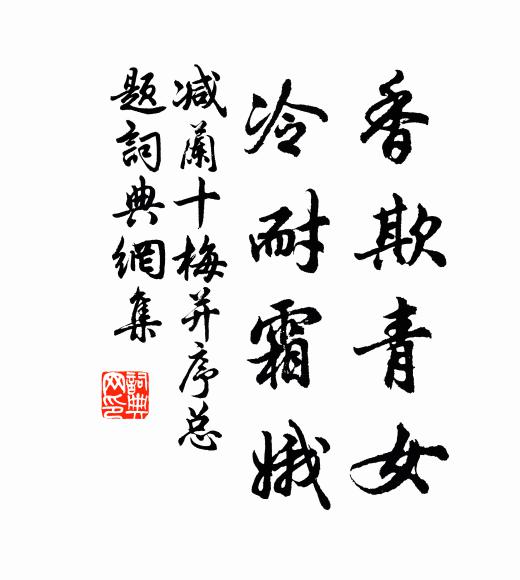 香欺青女
冷耐霜娥
減蘭十梅并序总
題詞典網集
詞典
网印